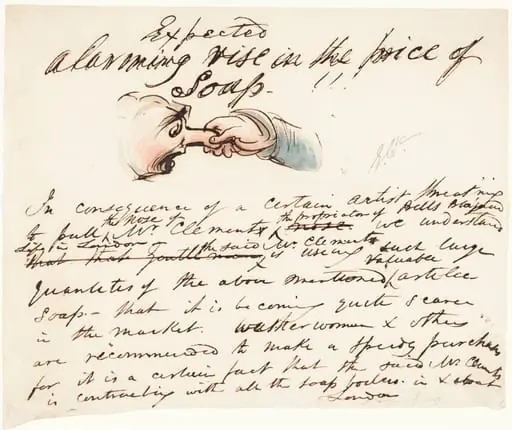 Expected
alarming rise in the price of
Soap - !!!
In consequence of a certain artist threat'ning
to pull the nose of Mr Clements the proprietor of Bells
Life in London we understand
that the said Mr Clements is using such large
Quantities of the above mentioned valuable article
Soap - that it is becoming quite scarce
in the market. Washerwomen & others
are recommended to make a speedy purchase
for it is a certain fact that the said Mr Clements
is contracting with all the soap boilers in & about
London